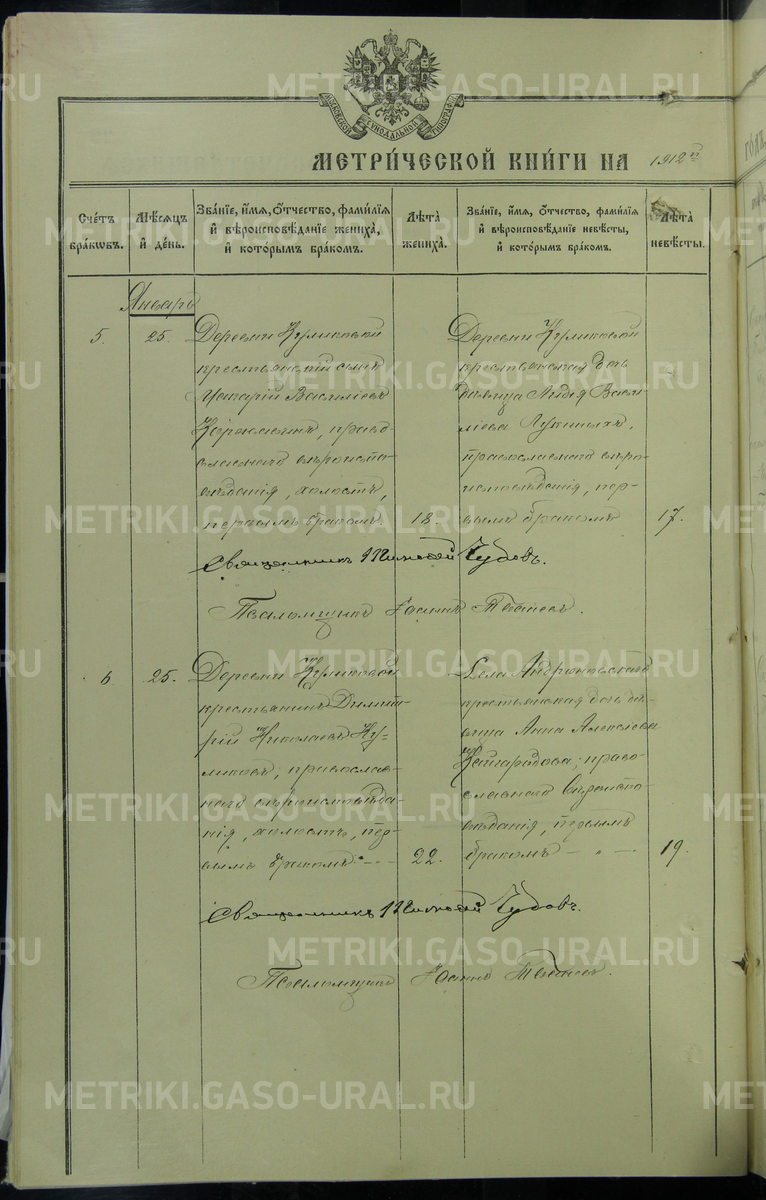 МОСКОВСКОЙ СѴНОДАЛЬНОЙ ТИПОГРАФІИ
МЕТРИ́ЧЕСКОЙ КНИ́ГИ НА 1912й
Сче́тъ бра́кωвъ.
Мѣ́сяцъ и҆ де́нь.
Зва́нїе, и҆́мя, ѻ҆́тчество, фами́лїя и҆ вѣроисповѣ́данїе жениха̀, и҆ кото́рымъ бра́комъ.
Лѣ́та жениха̀.
Зва́нїе, и҆́мя, ѻ҆́тчество, фами́лїя и҆ вѣроисповѣ́данїе невѣ́сты, и҆ кото́рымъ бра́комъ.
Лѣ́та невѣ́сты.
Январь
5. 25.
Деревни Куликовой
крестьянскій сынъ
Василіевъ
, право-
славнаго вѣроиспо-
вѣданія, холостъ,
первымъ бракомъ. 18.
Деревни Куликовой
крестьянская дочь
дѣвица Лидія Васи-
ліева
православнаго вѣро-
исповѣданія, пер-
вымъ бракомъ 17.
Священникъ Чудовъ.
Псаломщикъ
6 25.
Деревни Куликовой
крестьянинъ Димит-
рій Николаевъ Ку-
ликовъ, православ-
наго вѣроисповѣда-
нія, холостъ, пер-
вымъ бракомъ 22.
Села
крестьянская дочь дѣ-
вица Анна Алексіева
Кайгородова, право-
славнаго вѣроиспо-
вѣданія, первымъ
бракомъ — " — 19.
Священникъ Чудовъ.
Псаломщикъ
METRIKI.GASO-URAL.RU